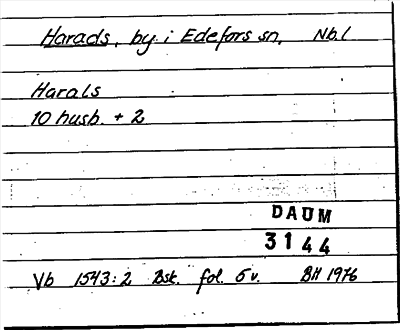 Harads, by i Edefors sn, Nb.l
Harals
10 husb. + 2
DAUM
3144
Vb 1543:2 Bsk. fol. 5v. BH 1976